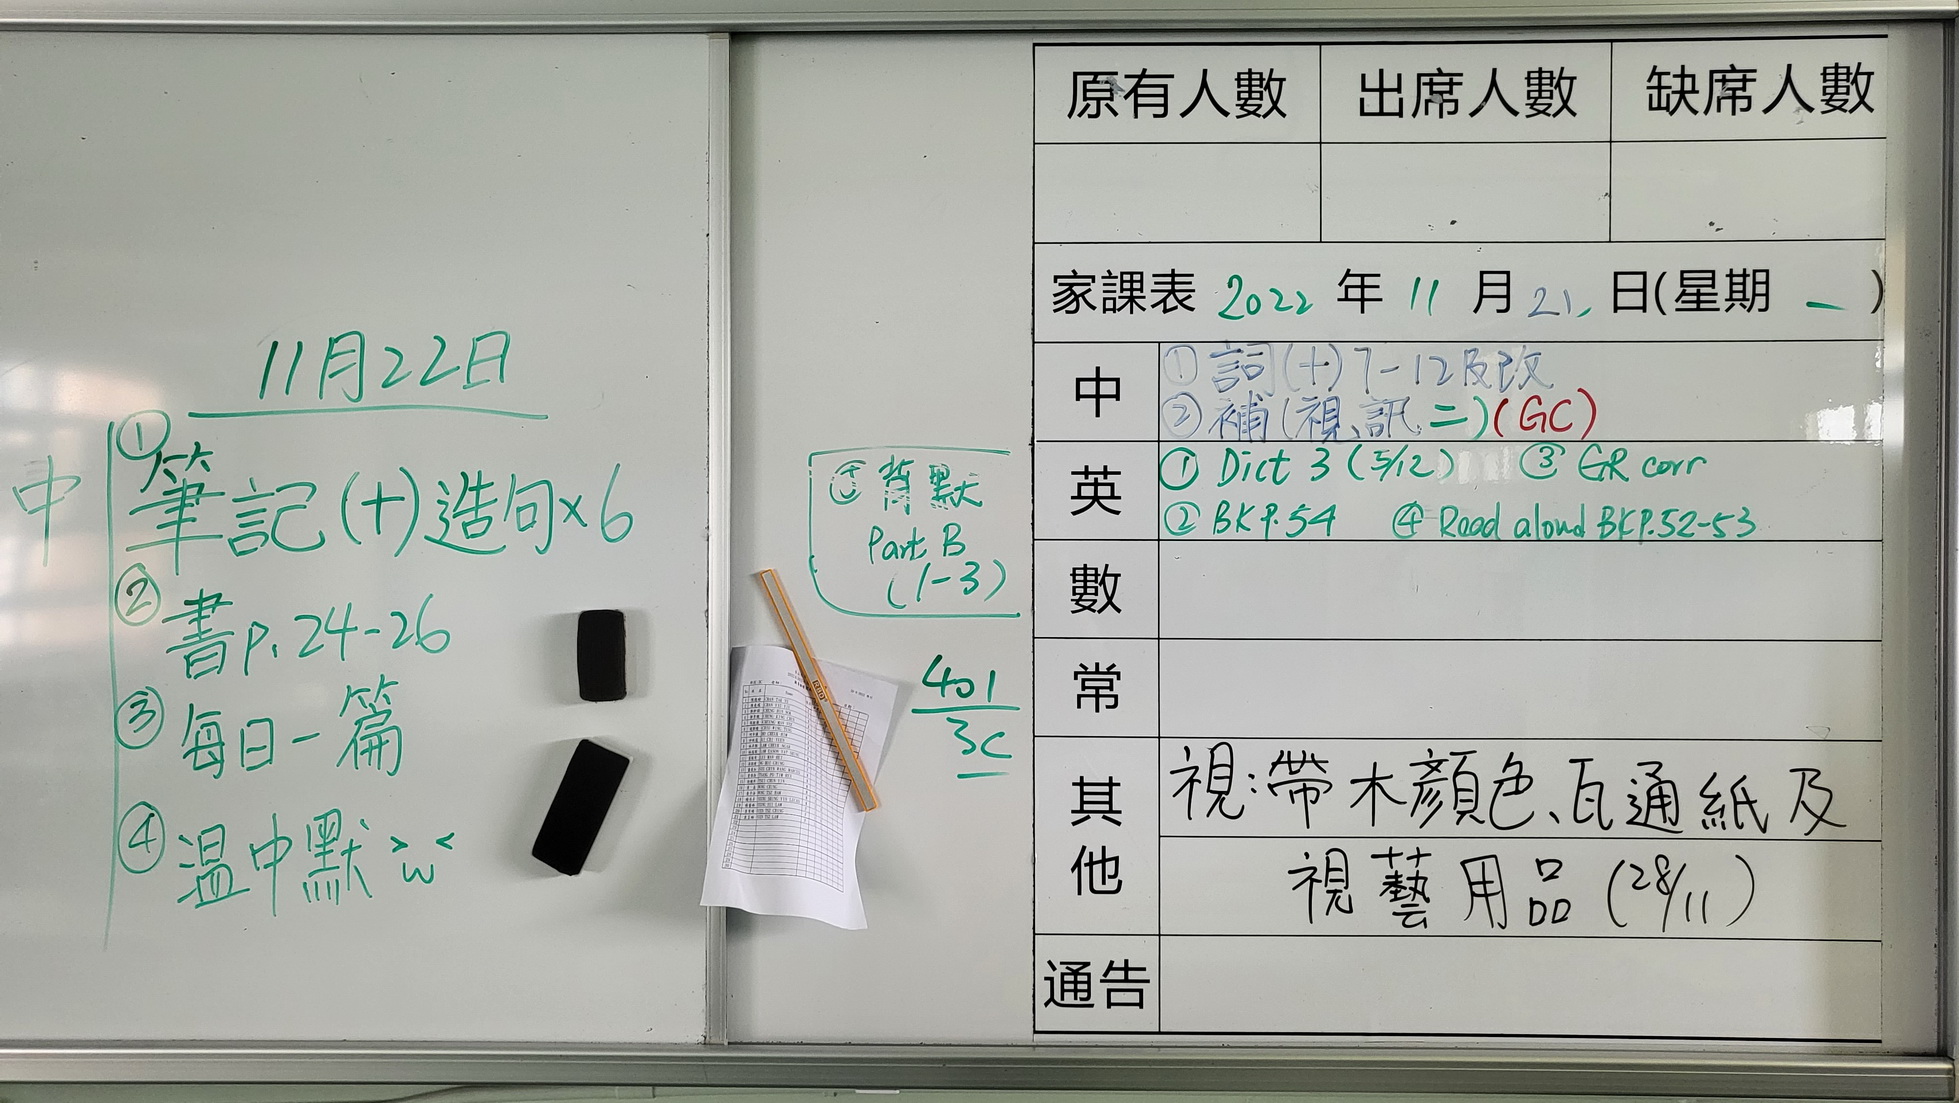 11月22日
中
①
筆記(十)造句×6
②
書p.24-26
③
每日一篇
④
溫中默 >w<
背默
Part B
(1-3)
401
3C
原有人數 出席人數 缺席人數
家課表 2022 年 11 月 21 日(星期 一 )
中
① 詞(十)7-12及改
② 補(視訊二)(GC)
英
① Dict 3 (5/12) ③ GR corr
② BK P.54 ④ Read aloud BK P.52-53
數
常
其他
視:帶木顏色、瓦通紙及
視藝用品(28/11)
通告